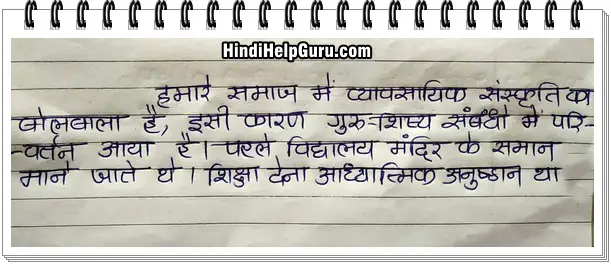 HindiHelpGuru.com
हमारे समाज में व्यावसायिक संस्कृति का
बोलबाला है, इसी कारण गुरु-शिष्य संबंधो में परि-
वर्तन आया है। पहले विद्यालय मंदिर के समान
माने जाते थे। शिक्षा देना आध्यात्मिक अनुष्ठान था